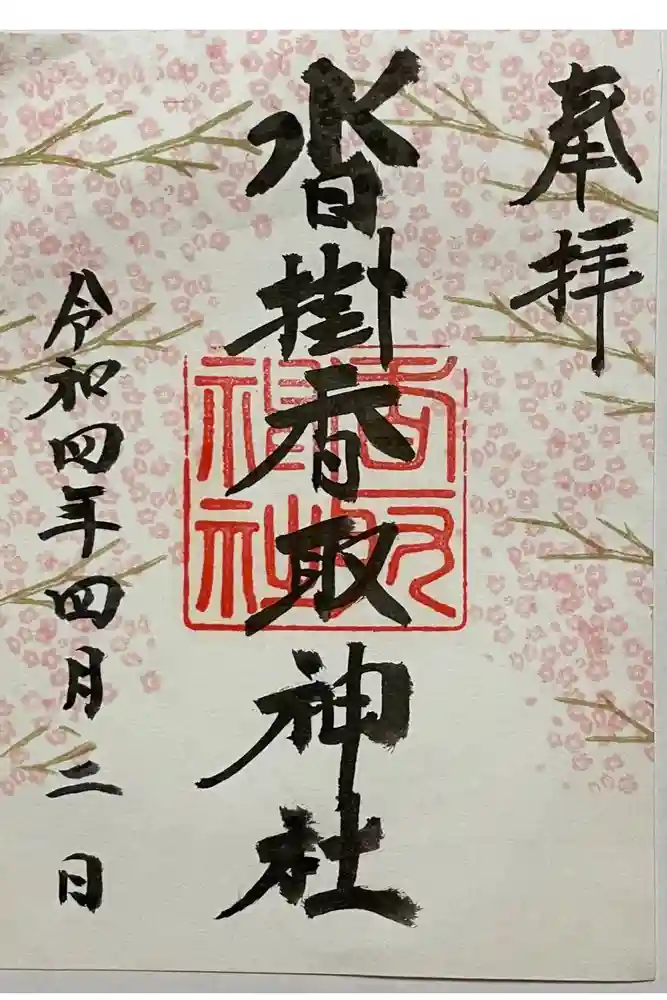 奉拝
沓掛香取神社
香取神社
令和四年四月二日